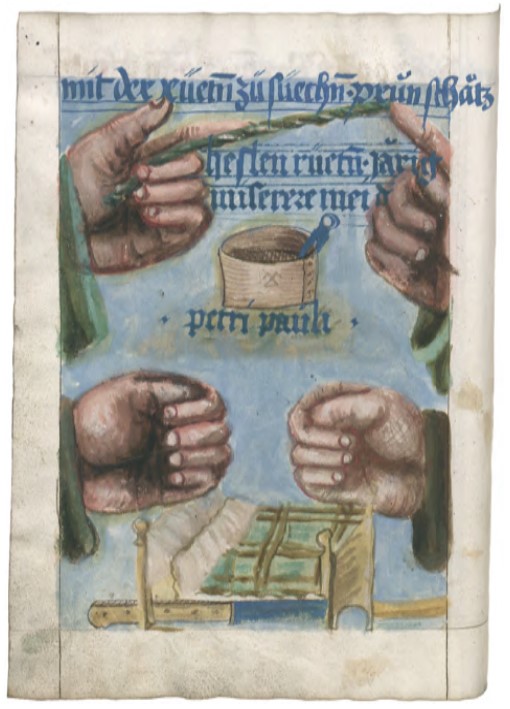 mit der rüetn̄ zü süechn̄ prün schätz
heslen rüetn̄ järig
miserere mei d
· petri pauli ·